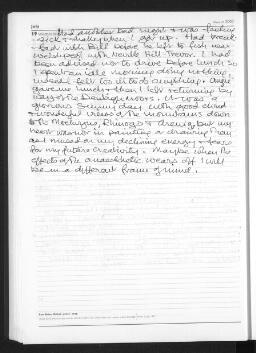 Had another bad night & was feeling
sick & shaky when I got up. Had break-
fast with Bill before he left to fish near
Welshpool with Uncle Bill Trevor. I had
been advised not to drive before lunch so
I spent an idle morning doing nothing,
indeed I felt too ill to do anything. Angie
gave me lunch & then I left returning by
way of the Denbigh moors. It was a
glorious sunny day with good cloud
& wonderful views of the mountains down
to the Moelwyns, Rhinogs & Arenig, but my
heart was not in painting or drawing & my
my declining energy & fears
for my future creativity. Maybe when the
effects of the anaesthetic wears off I will
be in a different frame of mind.